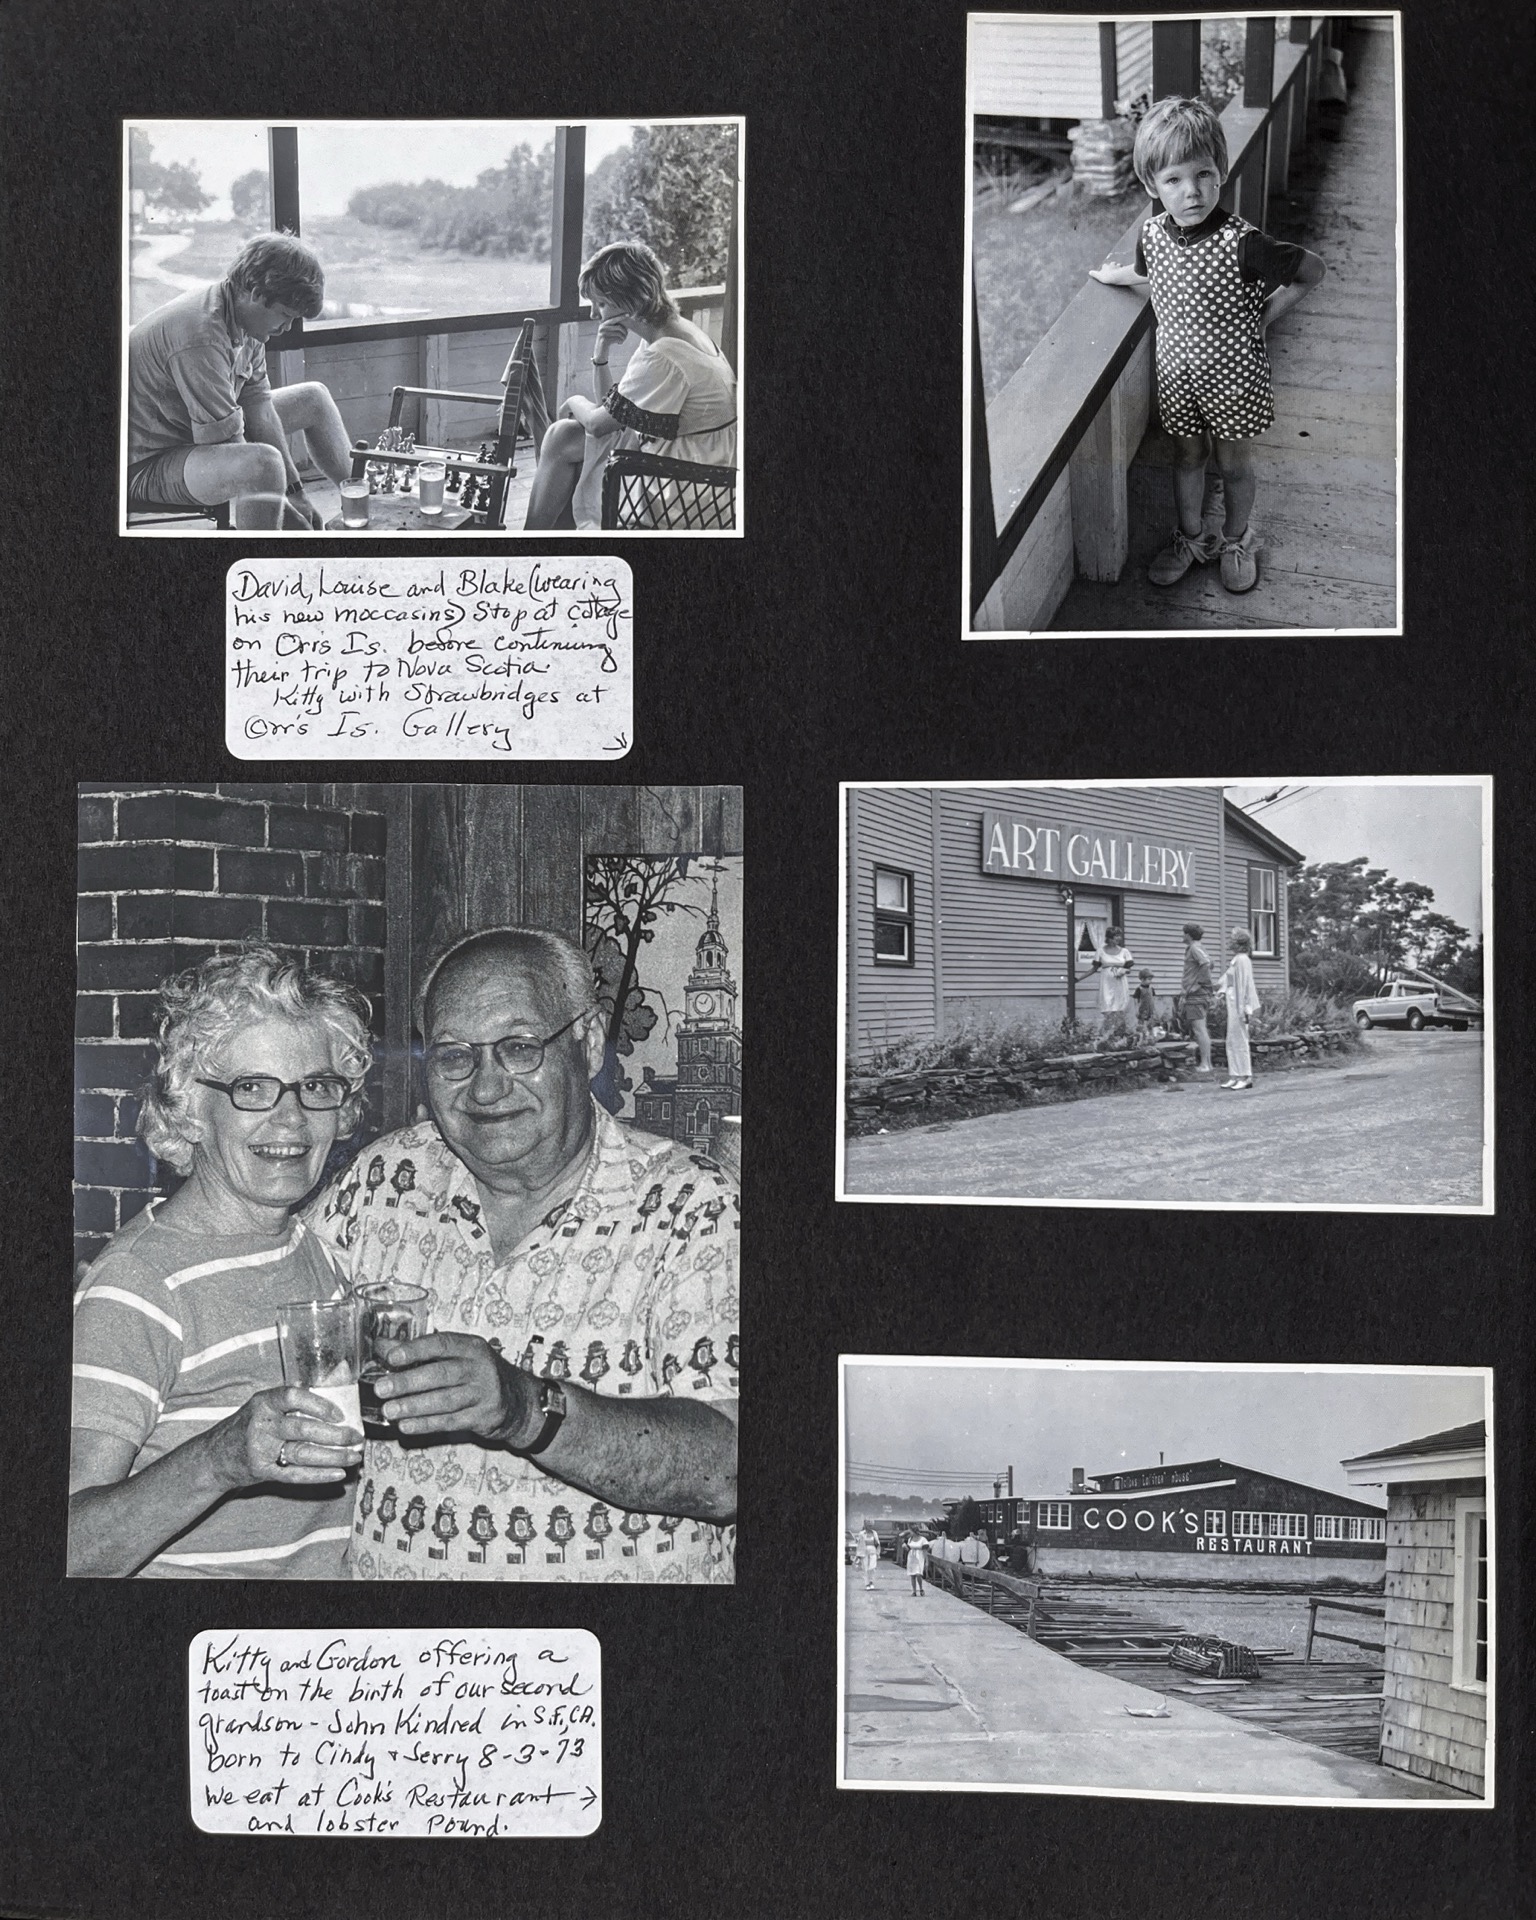 David, Louise and Blake (wearing
his new moccasins) Stop at cottage
on Orr's Is. before continuing
their trip to Nova Scotia.
Kitty with Strawbridges at
Orr's Is. Gallery
ART GALLERY
Kitty and Gordon offering a
toast on the birth of our second
grandson - John Kindred in S.F., CA.
born to Cindy & Jerry 8-3-73
We eat at Cook's Restaurant →
and lobster Pound.
COOK'S
RESTAURANT